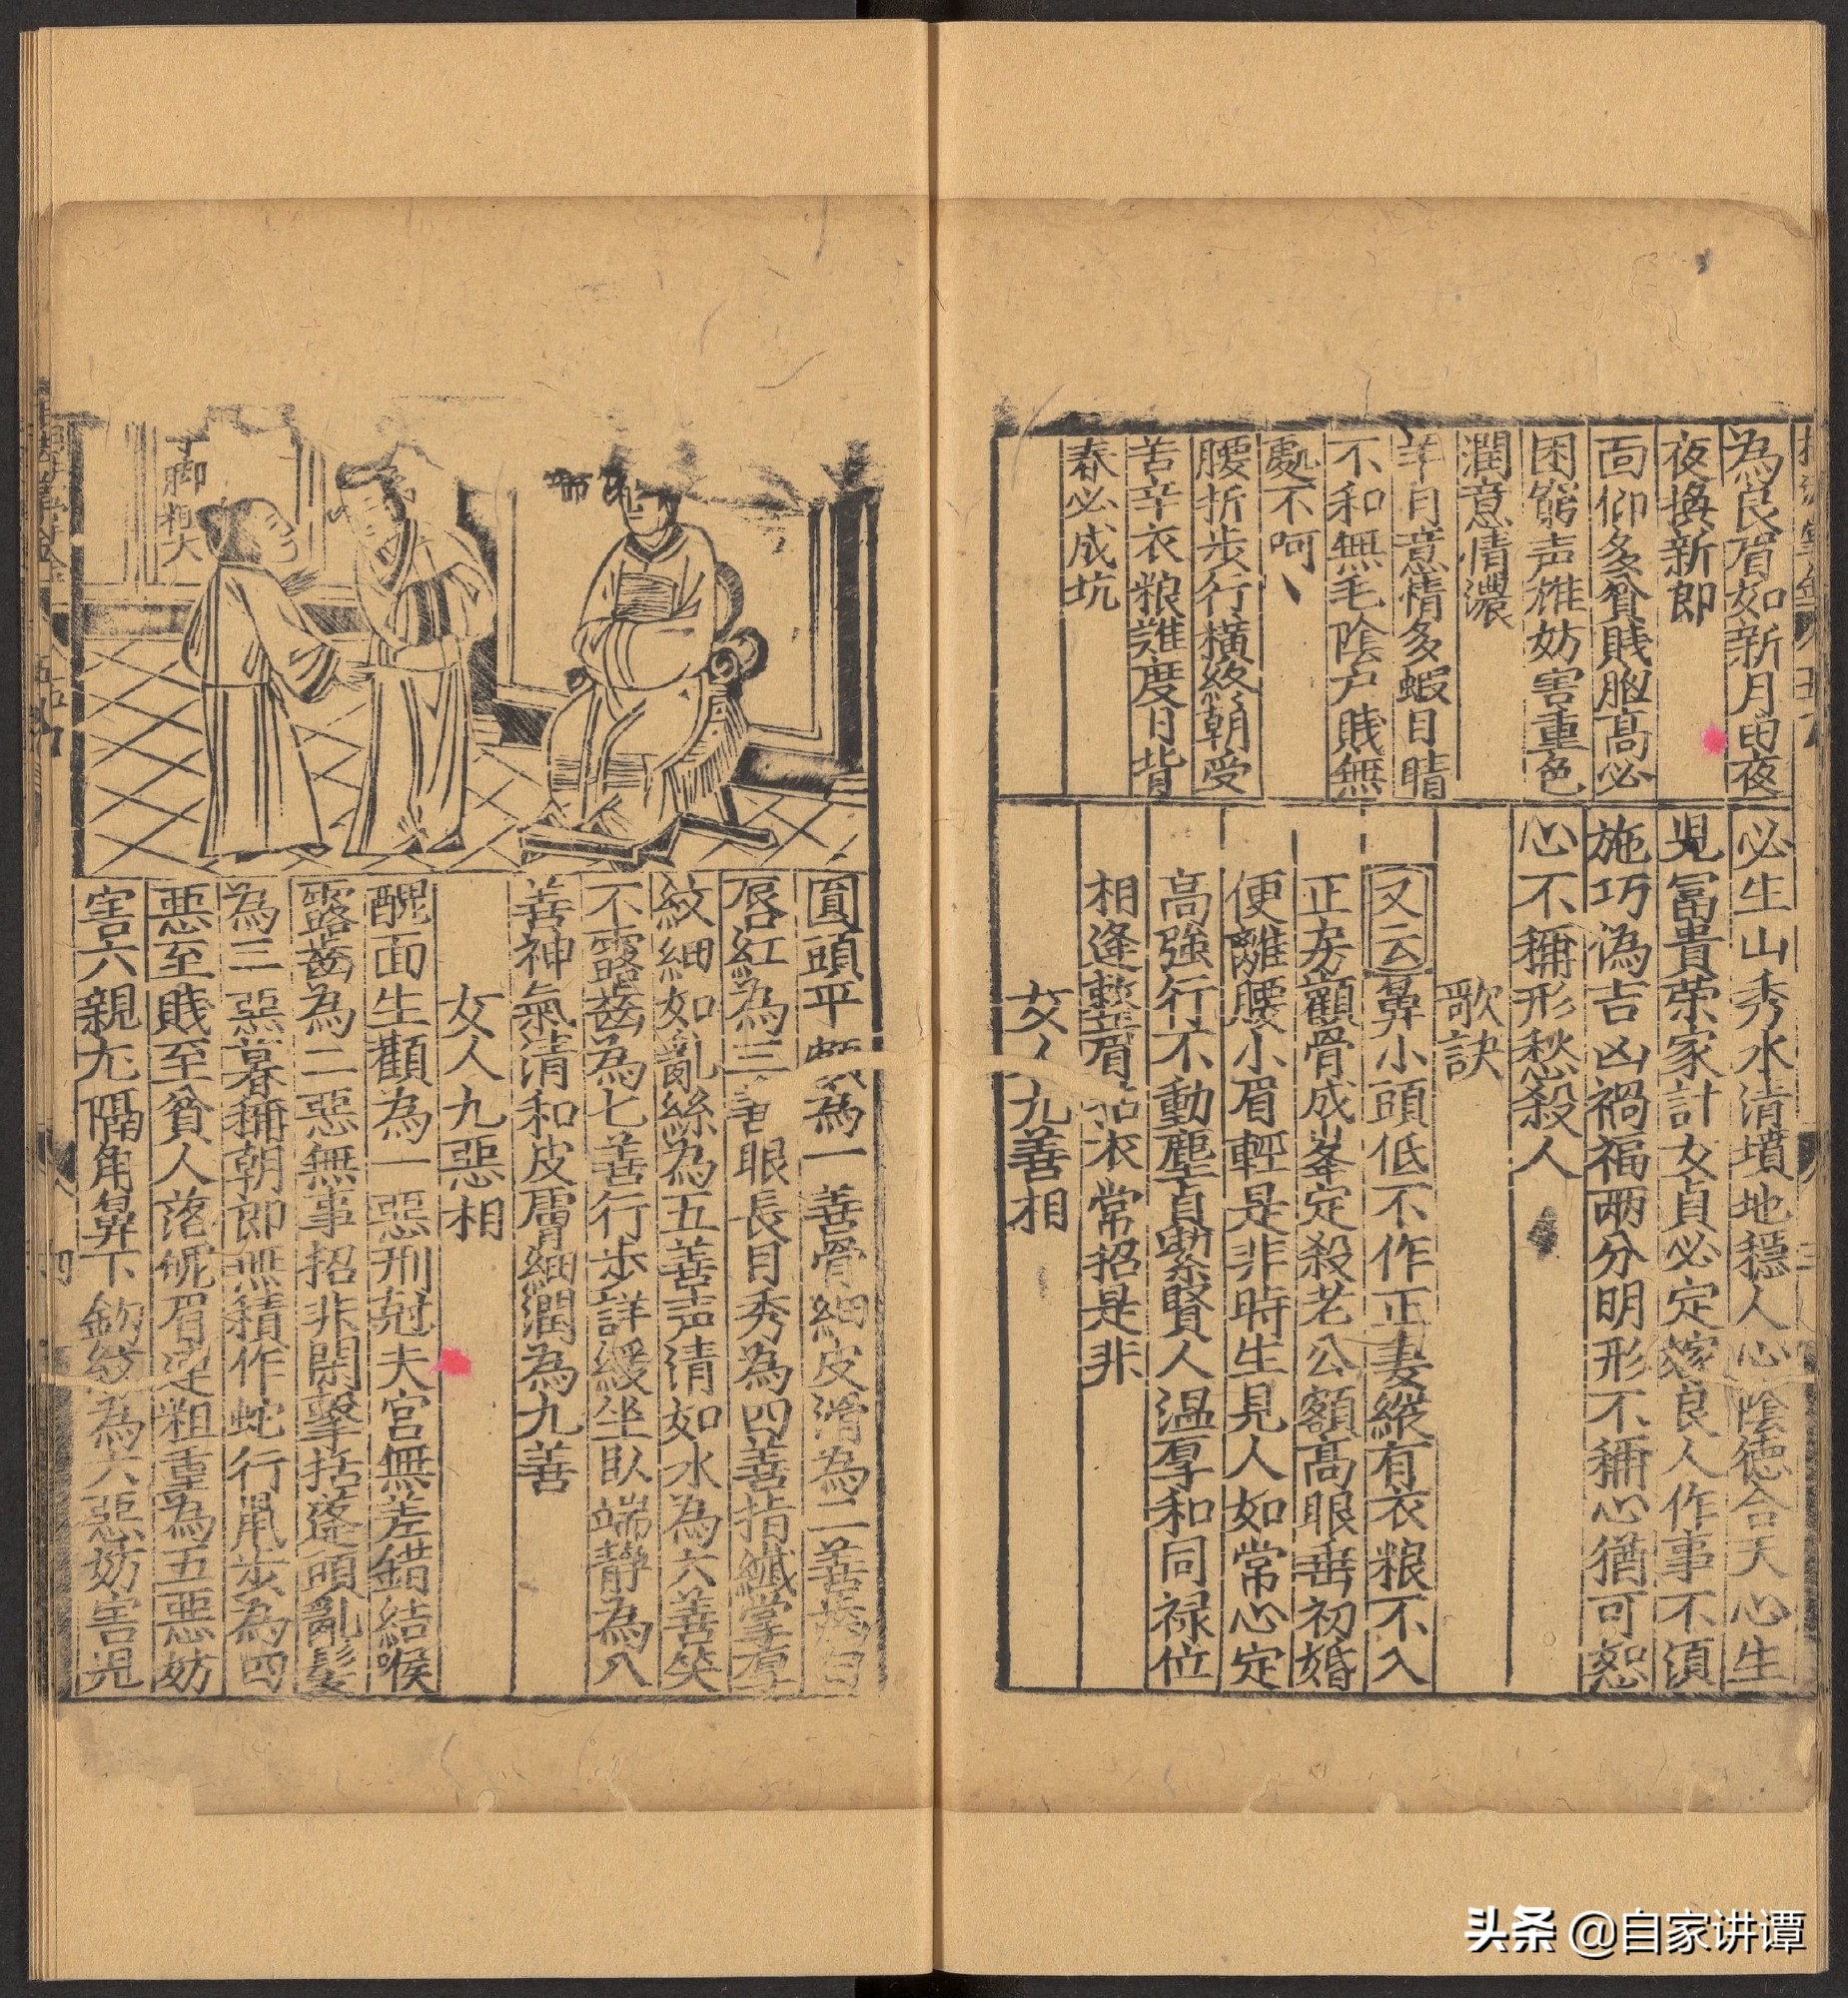 為良眉如新月曲夜
夜換新郎
面仰多貧賤胸高必
困窮声雄妨害重色
潤意情濃
羊目意情多蝦目睛
不和無毛陰户賤無
處不呵丶
腰折步行橫終朝受
苦辛衣粮難度日背
春必成坑
必生山秀水清墳地穩人心陰德合天心生
児冨貴荣家計女貞必定嫁良人作事不須
施巧偽吉凶禍福兩分明形不稱心猶可恕
心不稱形愁殺人
歌訣
又云鼻小頭低不作正妻縱有衣粮不入
正房顴骨成峯定殺老公額高眼垂初婚
便離腰小眉輕是非時生見人如常心定
高強行不動塵貞潔賢人温厚和同禄位
相逢整眉衣常招是非
女人九善相
丫脚相大
圓頭平為一善骨細皮滑為二善齒白
唇紅為三善眼長目秀為四善指纖掌厚
紋細如亂絲為五善声清如水為六善笑
不露齒為七善行步詳緩坐臥端静為八
善神氣清和皮膚細潤為九善
女人九惡相
醜面生顴為一惡刑尅夫宮無差錯結喉
露齒為二惡無事招非閑擊括蓬頭亂髮
為三惡暮稱朝郎無積作蛇行鼠步為四
惡至賤至貧人落眉逹粗重為五惡妨
害六親尢隔角鼻下鈎紋為六惡妨害児
头条 @自家讲谭